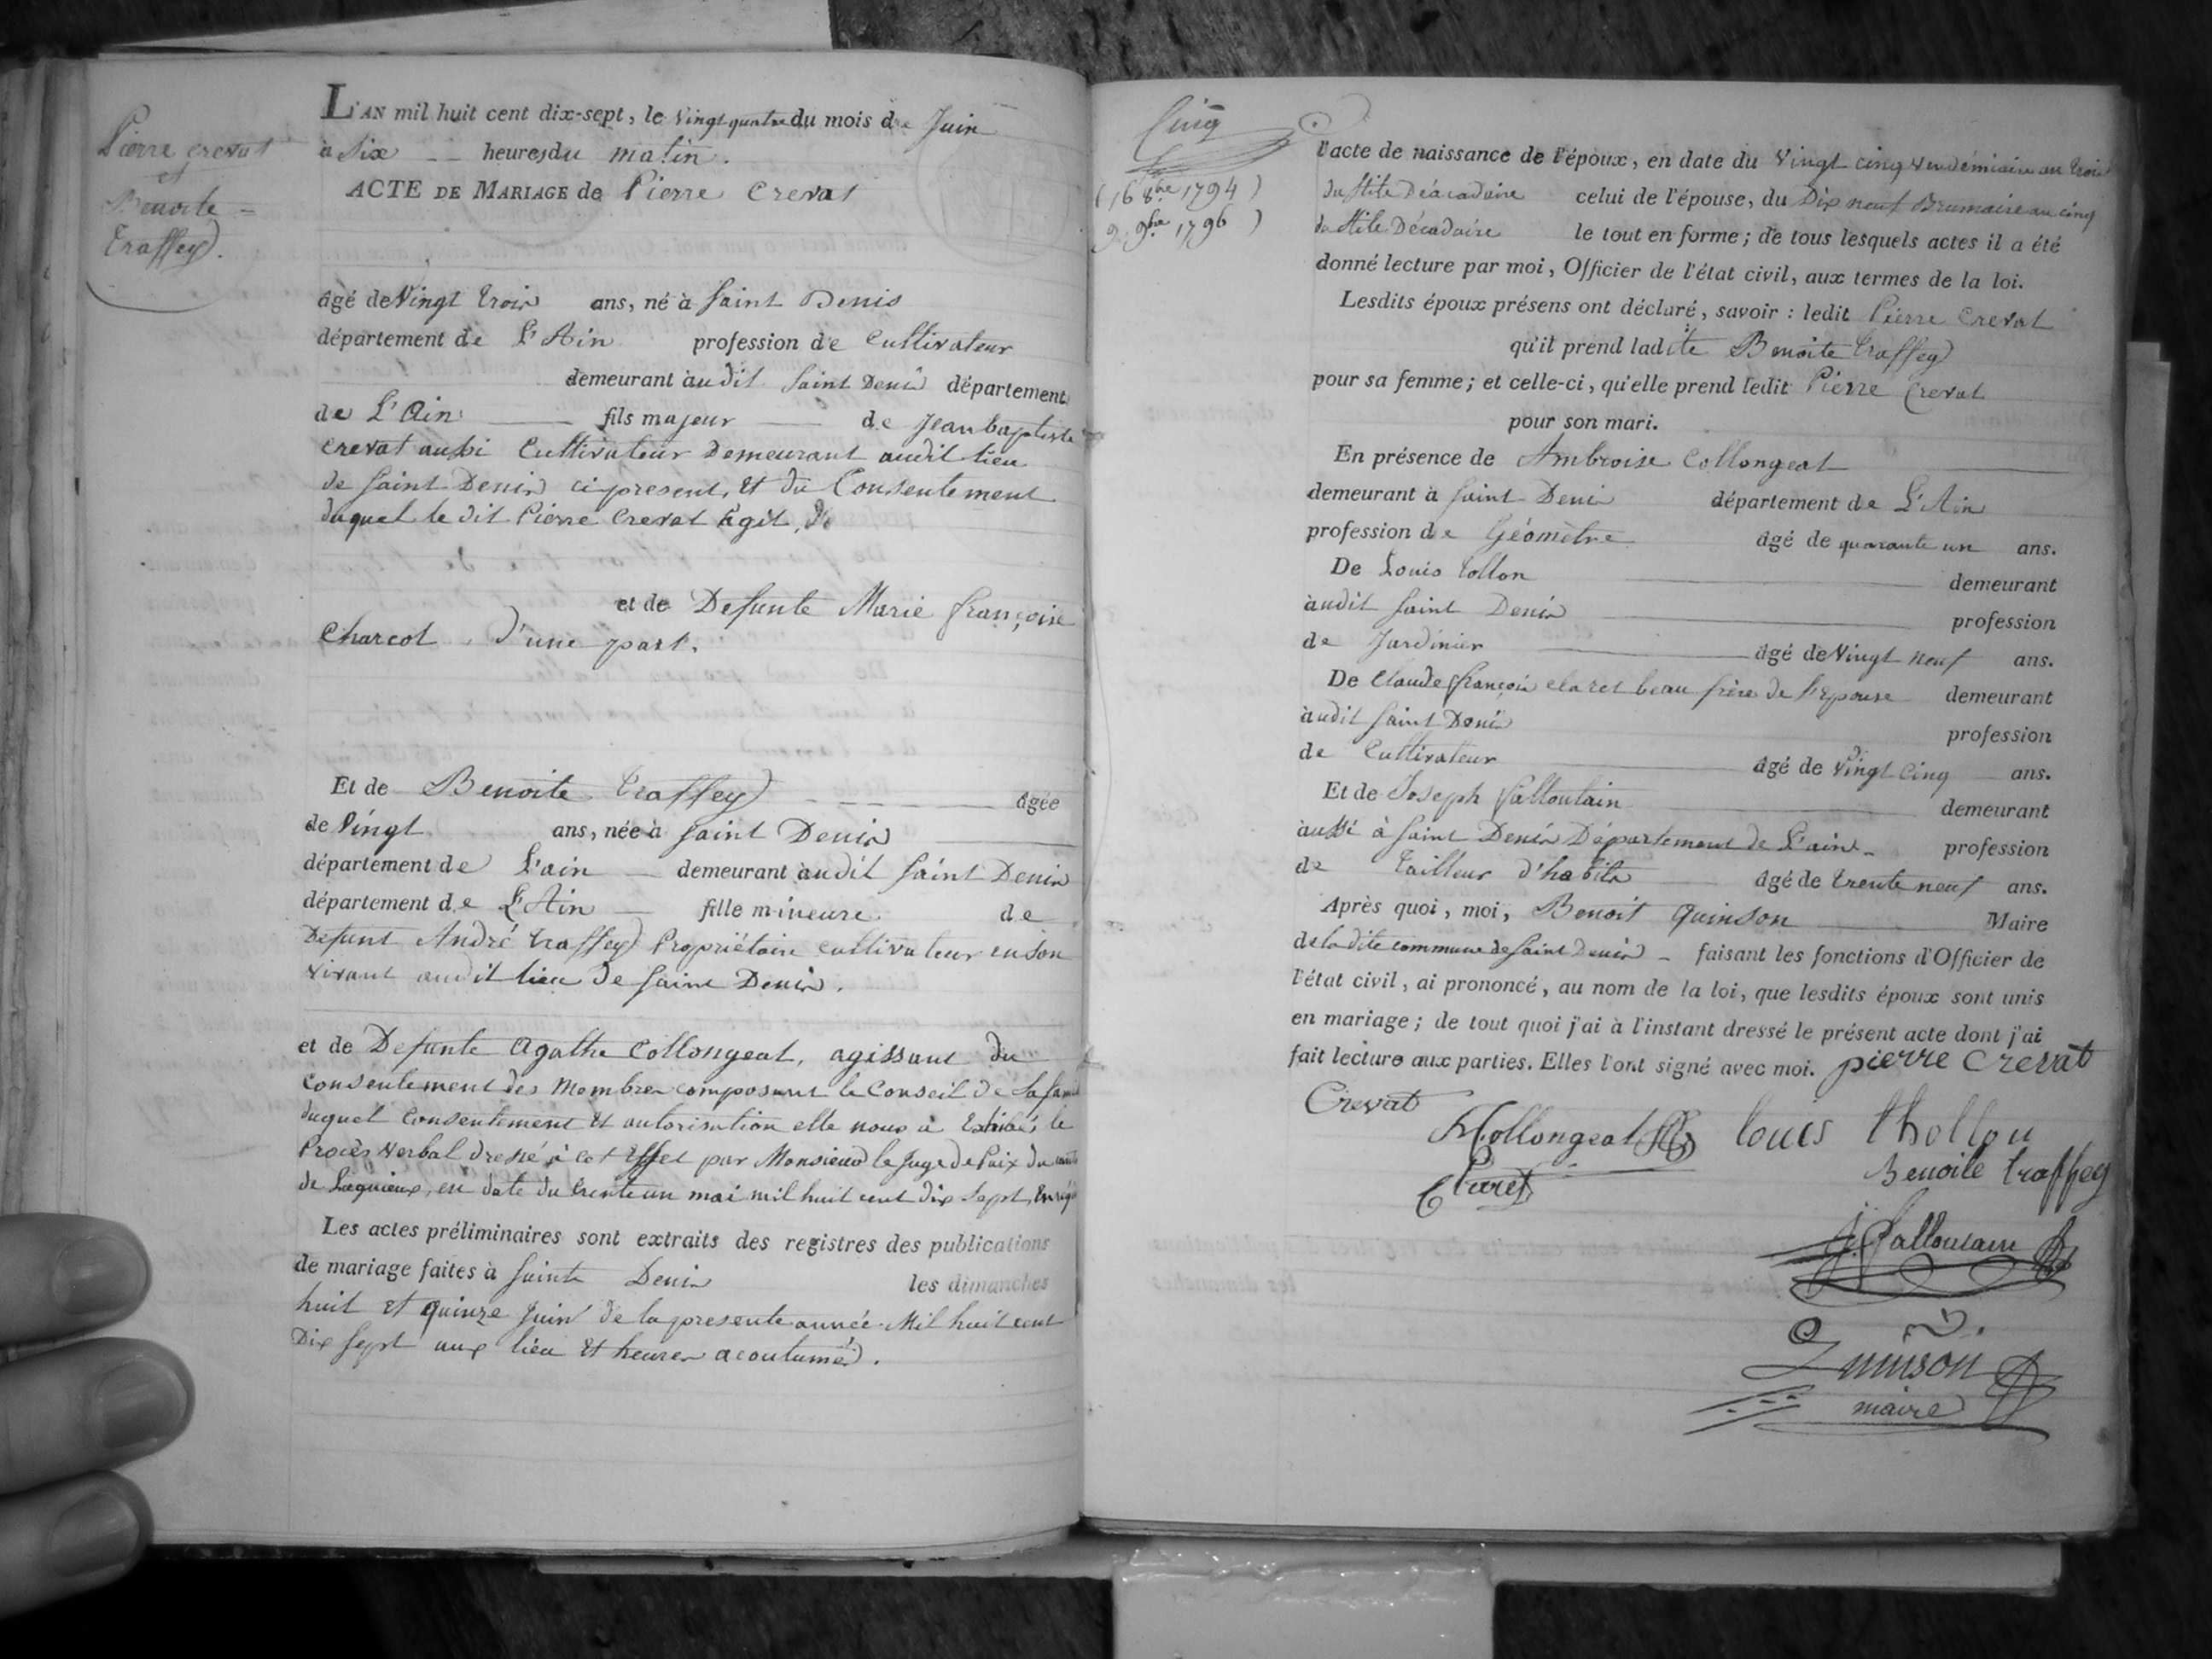 Pierre crevat
et
Benoite
traffey.
L'AN mil huit cent dix-sept, le vingt quatre du mois de Juin
à Six heures du matin.
ACTE DE MARIAGE de Pierre Crevat
âgé de Vingt trois ans, né à Saint Denis
département de L'Ain profession de Cultivateur
demeurant audit Saint Denis département
de L'Ain fils majeur de Jean baptiste
crevat aussi Cultivateur Demeurant audit lieu
de Saint Denis ci present, et du Consentement
duquel le dit Pierre Crevat agit,
et de Defunte Marie françoise
Charcot, d'une part.
Et de Benoite traffey âgée
de Vingt ans, née à Saint Denis
département de L'ain demeurant audit Saint Denis
département de L'Ain fille mineure de
Defunt André traffey Propriétaire cultivateur en son
vivant audit lieu de Saint Denis.
et de Defunte Agathe Collongeat, agissant du
Consentement des Membres composant le Conseil de Sa
duquel Consentement et autorisation elle nous a Exhibé le
Procès Verbal dressé à cet Effet par Monsieur le Juge de Paix du
de Lagnieux, en date du trente un mai mil huit cent dix Sept,
Les actes préliminaires sont extraits des registres des publications
de mariage faites à Saint Denis les dimanches
huit et quinze Juin de la presente année Mil huit cent
Dix Sept aux lieu et heures acoutumés.
Cinq
(16 8bre 1794)
9 9bre 1796)
l'acte de naissance de l'époux, en date du vingt cinq vendémiaire an trois
du Stile Déacadaire celui de l'épouse, du Dix neuf Brumaire an cinq
du Stile Décadaire le tout en forme; de tous lesquels actes il a été
donné lecture par moi, Officier de l'état civil, aux termes de la loi.
Lesdits époux présens ont déclaré, savoir : ledit Pierre Crevat
qu'il prend ladite Benoite traffey
pour sa femme; et celle-ci, qu'elle prend ledit Pierre Crevat
pour son mari.
En présence de Ambroise Collongeat
demeurant à Saint Denis département de L'Ain
profession de Géomètre âgé de quarante un ans.
De Louis tollon demeurant
audit Saint Denis profession
de Jardinier âgé de Vingt neuf ans.
De Claude françois claret beau frère de l'Epouse demeurant
audit Saint Denis profession
de Cultivateur âgé de Vingt Cinq ans.
Et de Joseph falloulain demeurant
aussi à Saint Denis Département de L'ain profession
de tailleur d'habits âgé de trente neuf ans.
Après quoi, moi, Benoit Quinson Maire
de la dite commune de Saint Denis faisant les fonctions d'Officier de
l'état civil, ai prononcé, au nom de la loi, que lesdits époux sont unis
en mariage; de tout quoi j'ai à l'instant dressé le présent acte dont j'ai
fait lecture aux parties. Elles l'ont signé avec moi. pierre crevat
Crevat
Collongeat louis thollon
Claret Benoite traffey
j. falloulain
Quinson
maire